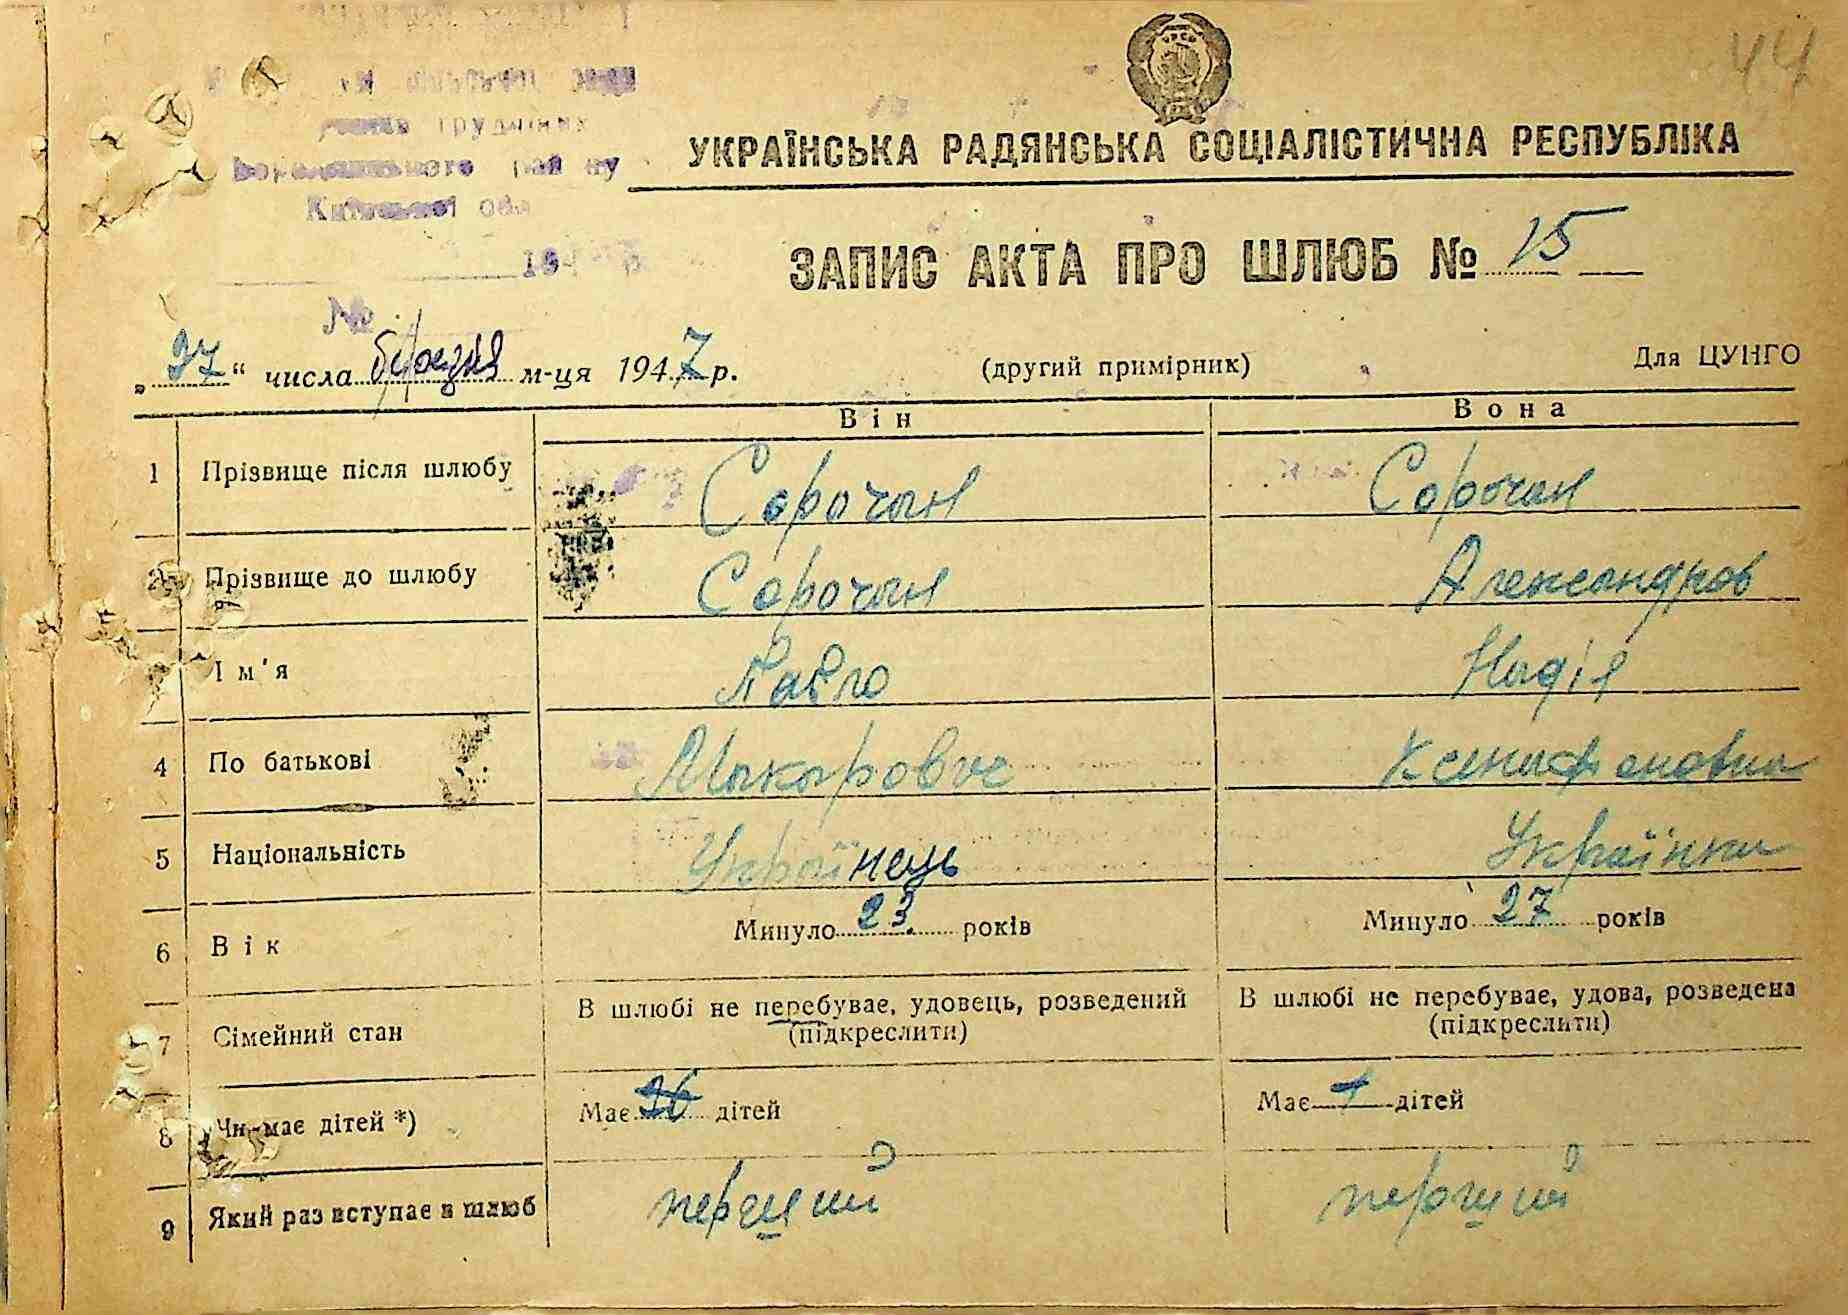 44
УКРАЇНСЬКА РАДЯНСЬКА СОЦІАЛІСТИЧНА РЕСПУБЛІКА
Київської обл
194 р.
№
ЗАПИС АКТА ПРО ШЛЮБ № 15
„27“ числа березня м-ця 1947 р. (другий примірник) Для ЦУНГО
Він Вона
1 Прізвище після шлюбу Сорочан Сорочан
2 Прізвище до шлюбу Сорочан Александров
Ім'я Павло Надія
4 По батькові Макарович Ксенофоновна
5 Національність Українець Українка
6 Вік Минуло 23 років Минуло 27 років
7 Сімейний стан В шлюбі не перебуває, удовець, розведений (підкреслити) В шлюбі не перебуває, удова, розведена (підкреслити)
8 Чи має дітей *) Має дітей Має дітей
9 Який раз вступає в шлюб перший перший